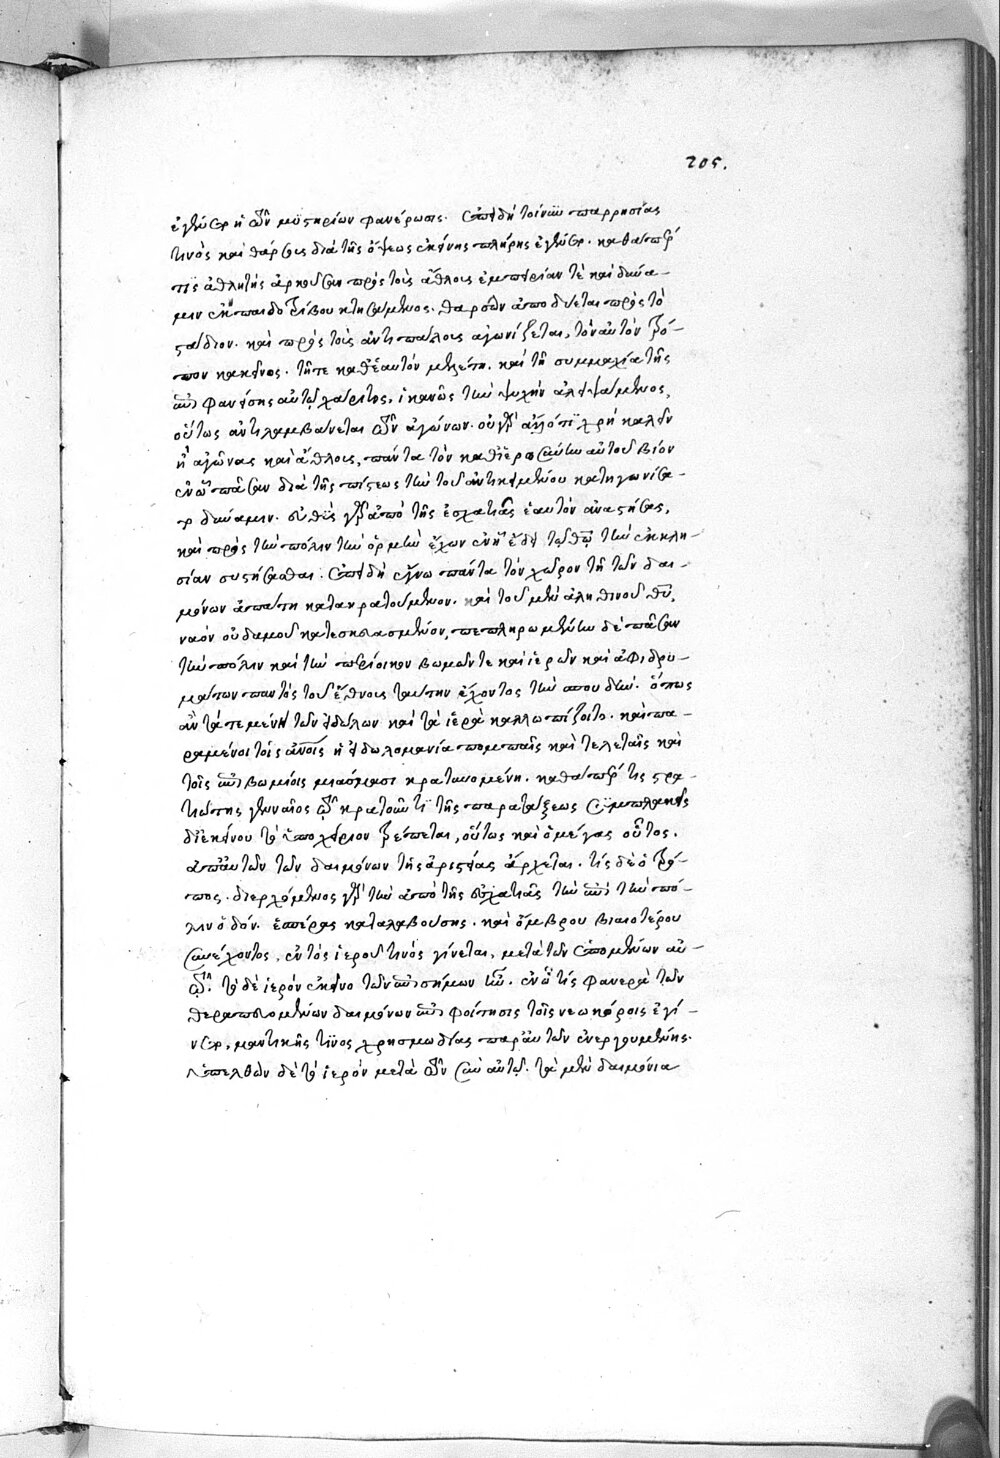 205.
ἐγένετο ἡ τῶν μυστηρίων φανέρωσις. ἐπειδὴ τοίνυν παρρησίας
τινὸς καὶ θάρσους διὰ τῆς ὄψεως ἐκείνης πλήρης ἐγένετο. καθάπερ
τις ἀθλητὴς ἀρκοῦσαν πρὸς τοὺς ἄθλους ἐμπειρίαν τὲ καὶ δύνα-
μιν ἐν παιδοτρίβου κτησάμενος. θαρσῶν ἀποδύεται πρὸς τὸ
στάδιον. καὶ πρὸς τοὺς ἀντιπάλους ἀγωνίζεται, τὸν αὐτὸν τρό-
πον κἀκεῖνος. τῆ τε καθ' ἑαυτὸν μελέτη. καὶ τῆ συμμαχία τῆς
ἐπιφανείσης αὐτῷ χάριτος, ἱκανῶς τὴν ψυχὴν ἀλειψάμενος,
οὕτως ἀντιλαμβάνεται τῶν ἀγώνων. οὐ γὰρ ἄλλό τι χρὴ καλεῖν
ἢ ἀγῶνας καὶ ἄθλους, πάντα τὸν καθ' ἱερωσύνην αὐτοῦ βίον
ἐν ᾧ πᾶσαν διὰ τῆς πίστεως τὴν τοῦ ἀντικειμένου κατηγωνίσα-
το δύναμιν. εὐθὺς γὰρ ἀπὸ τῆς ἐσχατιᾶς ἑαυτὸν ἀναστήσας,
καὶ πρὸς τὴν πόλιν τὴν ὁρμὴν ἔχων ἐν ἧ ἔδει τῷ θῷ τὴν ἐκκλη-
σίαν συστήσασθαι. ἐπειδὴ ἔγνω πάντα τὸν χῶρον τῆ τῶν δαι-
μόνων ἀπάτη κατακρατούμενον. καὶ τοῦ μὲν ἀληθινοῦ θῦ,
ναὸν οὐδαμοῦ κατεσκευασμένον, πεπληρωμένην δὲ πᾶσαν
τὴν πόλιν καὶ τὴν περίοικον βωμῶν τε καὶ ἱερῶν καὶ ἀφιδρυ-
μάτων παντὸς τοῦ ἔθνους ταύτην ἔχοντος τὴν σπουδήν. ὅπως
ἂν τὰ τεμένη τῶν εἰδώλων καὶ τὰ ἱερὰ καλλωπίζοιτο. καὶ πα-
ραμένοι τοῖς ἀνοις ἡ εἰδωλομανία πομπαῖς καὶ τελεταῖς καὶ
τοῖς ἐπιβωμίοις μιάσμασι κρατυνομένη. καθάπερ τις στρα-
τιώτης γενναῖος τῷ κρατοῦντι τῆς παρατάξεως συμπλακεὶς
δι' ἐκείνου τὸ ὑποχείριον τρέπεται, οὕτως καὶ ὁ μέγας οὗτος.
ἀπ' αὐτῶν τῶν δαιμόνων τῆς ἀριστείας ἄρχεται. τίς δὲ ὁ τρό-
πος. διερχόμενος γὰρ τὴν ἀπὸ τῆς ἐσχατιᾶς τὴν ἐπὶ τὴν πό-
λιν ὁδόν. ἑσπέρας καταλαβούσης. καὶ ὄμβρου βιαιοτέρου
συνέχοντος, ἐντὸς ἱεροῦ τινὸς γίνεται, μετὰ τῶν ἑπομένων αὐ-
τῷ. τὸ δὲ ἱερὸν ἐκεῖνο τῶν ἐπισήμων ἦν. ἐν ᾧ τίς φανερὰ τῶν
θεραπευομένων δαιμόνων ἐπιφοίτησις τοῖς νεωκόροις ἐγί-
νετο, μαντικῆς τινος χρησμωδίας παρ' αὐτῶν ἐνεργουμένης.
ὑπελθὼν δὲ τὸ ἱερὸν μετὰ τῶν σὺν αὐτῷ. τὰ μὲν δαιμόνια